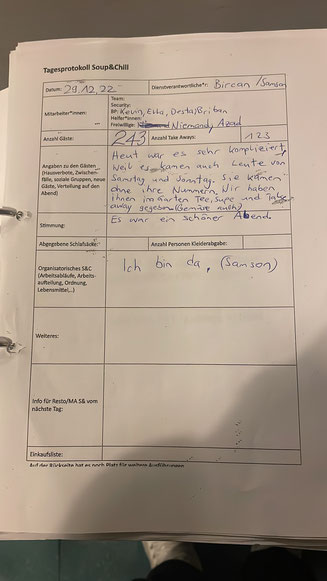 Tagesprotokoll Soup&Chill
Datum: 29.12.22 Dienstverantwortliche*r: Bircan/Samson
Mitarbeiter*innen:
Team:
Security:
BP: Kevin, Etta, Desta/Briban
Helfer*innen:
Freiwillige: Niemand, Azad
Anzahl Gäste: 243 Anzahl Take Aways: 123
Angaben zu den Gästen
(Hausverbote, Zwischen-
fälle, soziale Gruppen, neue
Gäste, Verteilung auf den
Abend)
Heut war es sehr kompliziert,
weil es kamen auch Leute von
Samstag und Sonntag. Sie kamen
ohne ihre Nummern, Wir haben
ihnen im Garten Tee, Supe und Take
away gegeben (Gemüse auch)
Stimmung: Es war ein schöner Abend.
Abgegebene Schlafsäcke: Anzahl Personen Kleiderabgabe:
Organisatorisches S&C
(Arbeitsabläufe, Arbeits-
aufteilung, Ordnung,
Lebensmittel,..)
Ich bin da, (Samson)
Weiteres:
Info für Resto/MA S& vom
nächste Tag:
Einkaufsliste:
Auf der Rückseite hat es noch Platz für weitere Ausführungen